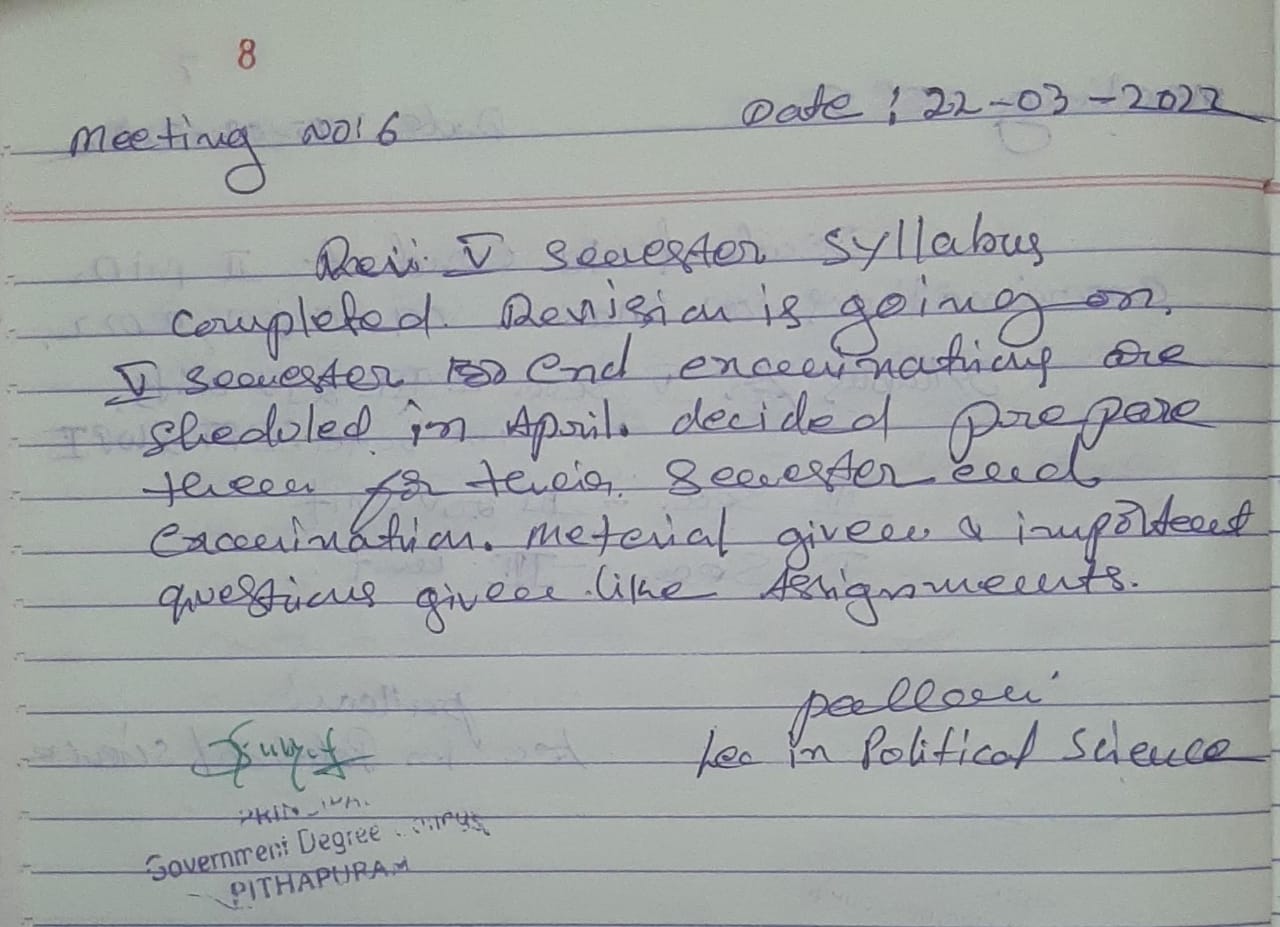 8
Meeting NO: 6
Date : 22-03-2022
V semester syllabus
completed. Revision is going on,
V semester end examinations are
sheduled in April. decided prepare
them for their semester end
examination. Meterial given & important
questions given like Assignments.
pallavi
Lec in Political Science
Government Degree
PITHAPURAM